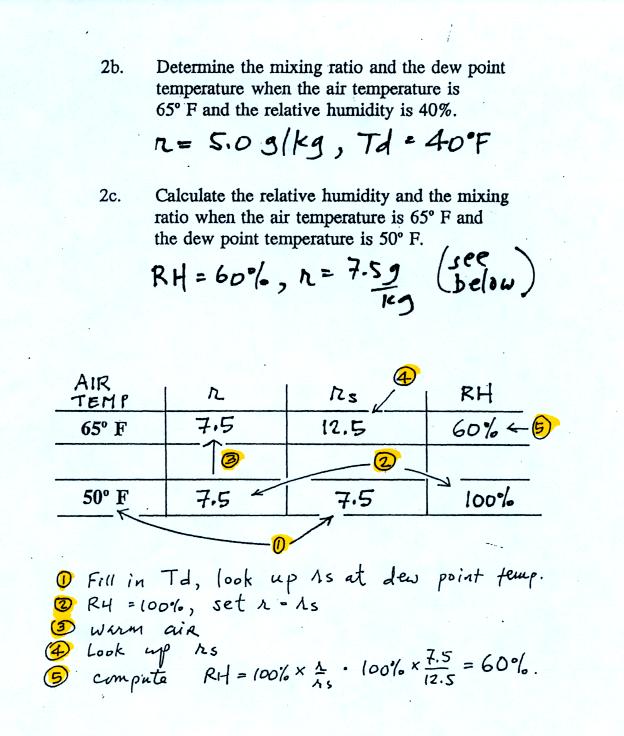 2b. Determine the mixing ratio and the dew point
temperature when the air temperature is
65° F and the relative humidity is 40%.
r = 5.0 g/kg, Td = 40°F
2c. Calculate the relative humidity and the mixing
ratio when the air temperature is 65° F and
the dew point temperature is 50° F.
RH = 60%, r = 7.5 g/kg (see below)
AIR TEMP r rs ④ RH
65° F 7.5 12.5 60% ← ⑤
③ ②
50° F 7.5 7.5 100%
①
① Fill in Td, look up rs at dew point temp.
② RH = 100%, set r = rs
③ warm air
④ Look up rs
⑤ compute RH = 100% × r/rs = 100% × 7.5/12.5 = 60%.